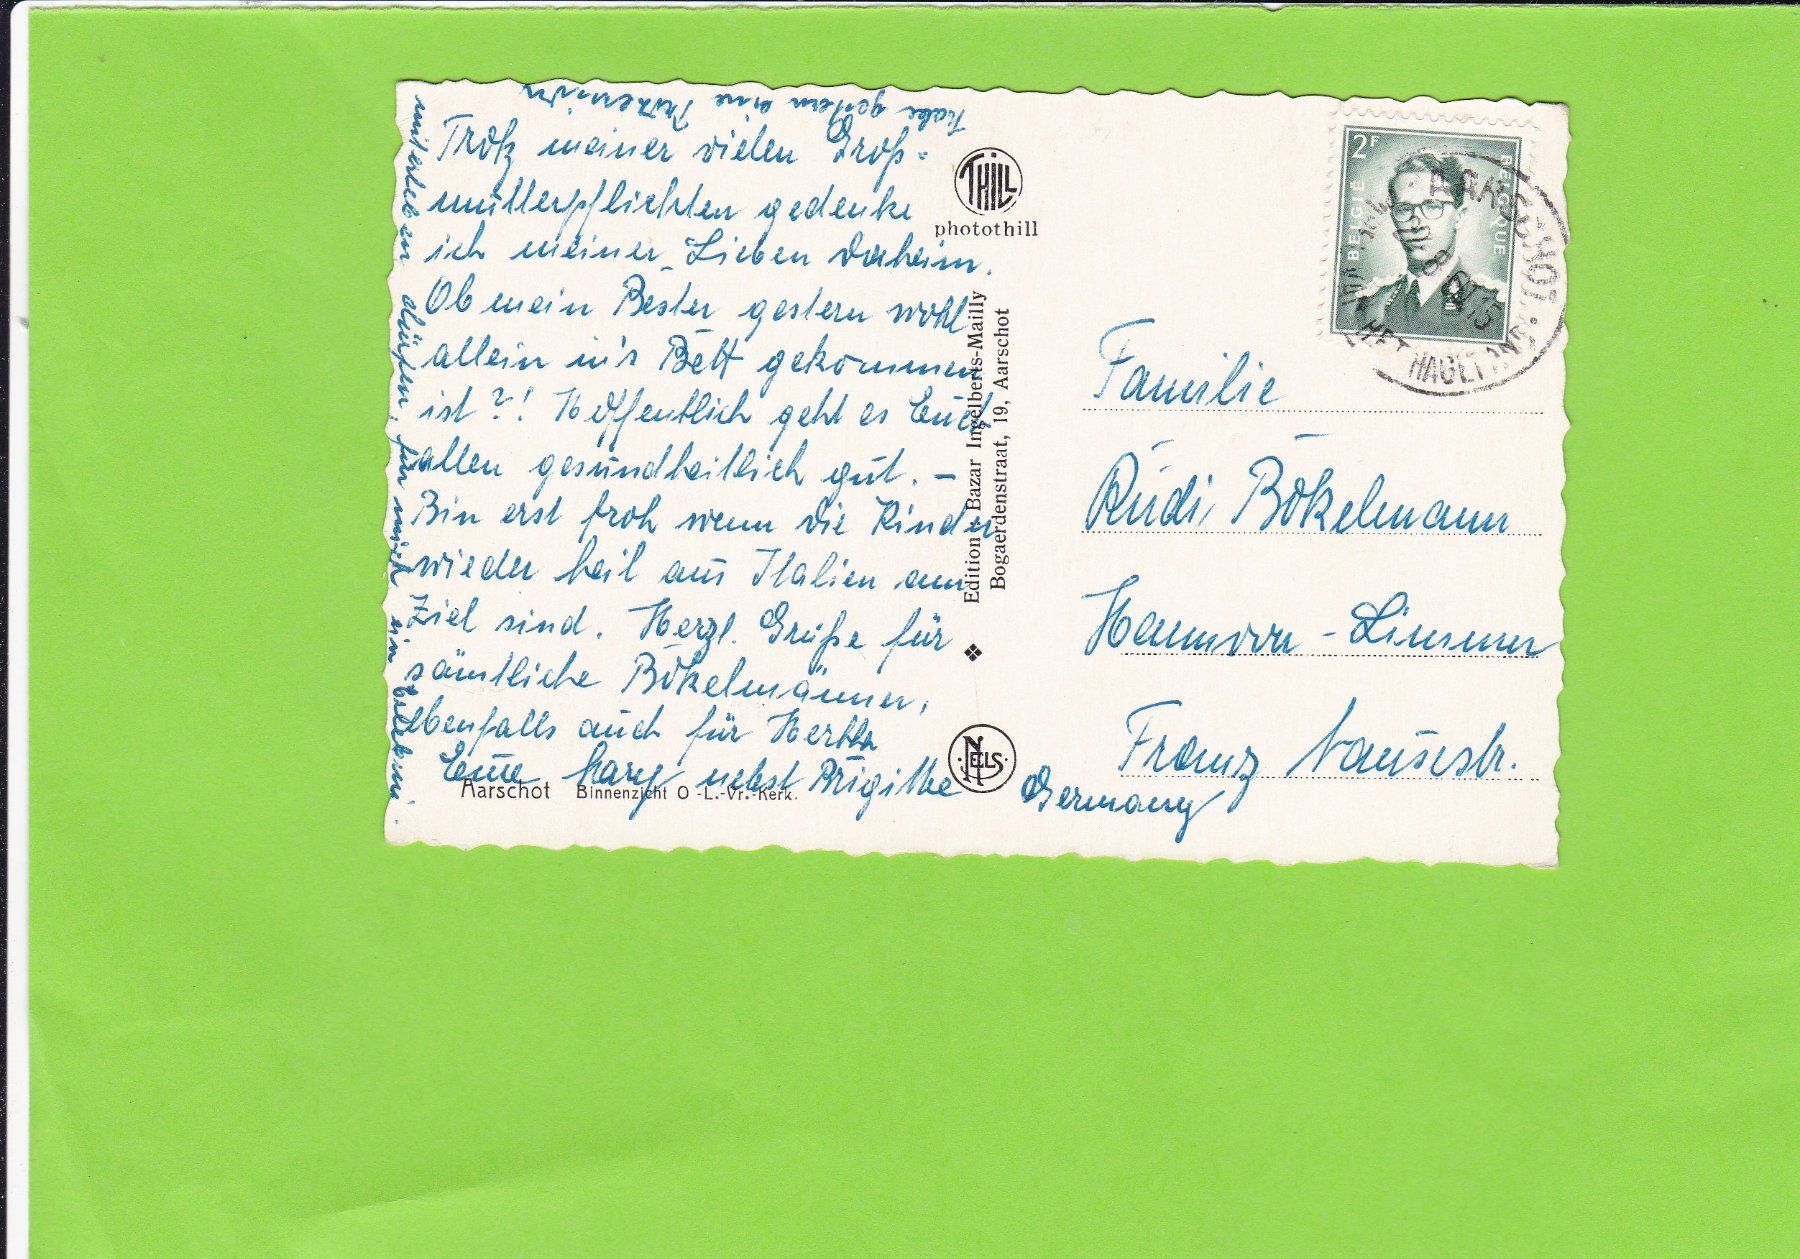 Trotz meiner vielen Groß-
mutterpflichten gedenke
ich meiner Lieben daheim.
Ob mein Bester gestern wohl
allein in's Bett gekommen
ist?! Hoffentlich geht es Euch
allen gesundheitlich gut. –
Bin erst froh wenn die Kinder
wieder heil aus Italien am
Ziel sind. Herzl. Grüße für
sämtliche Bökelmänner,
ebenfalls auch für Hertha
Eure Mary nebst Brigitte
habe gestern eine
miterleben dürfen, für mich ein Erleben.
Aarschot Binnenzicht O.-L.-Vr.-Kerk.
THILL
photothill
Edition: Bazar Ingelberts-Mailly
Bogaerdenstraat, 19, Aarschot
NELS
2F
BELGIË
BELGIQUE
AARSCHOT
HET HAGELAND
Familie
Rudi Bökelmann
Hannover-Limmer
Franz Nausestr.
Germany